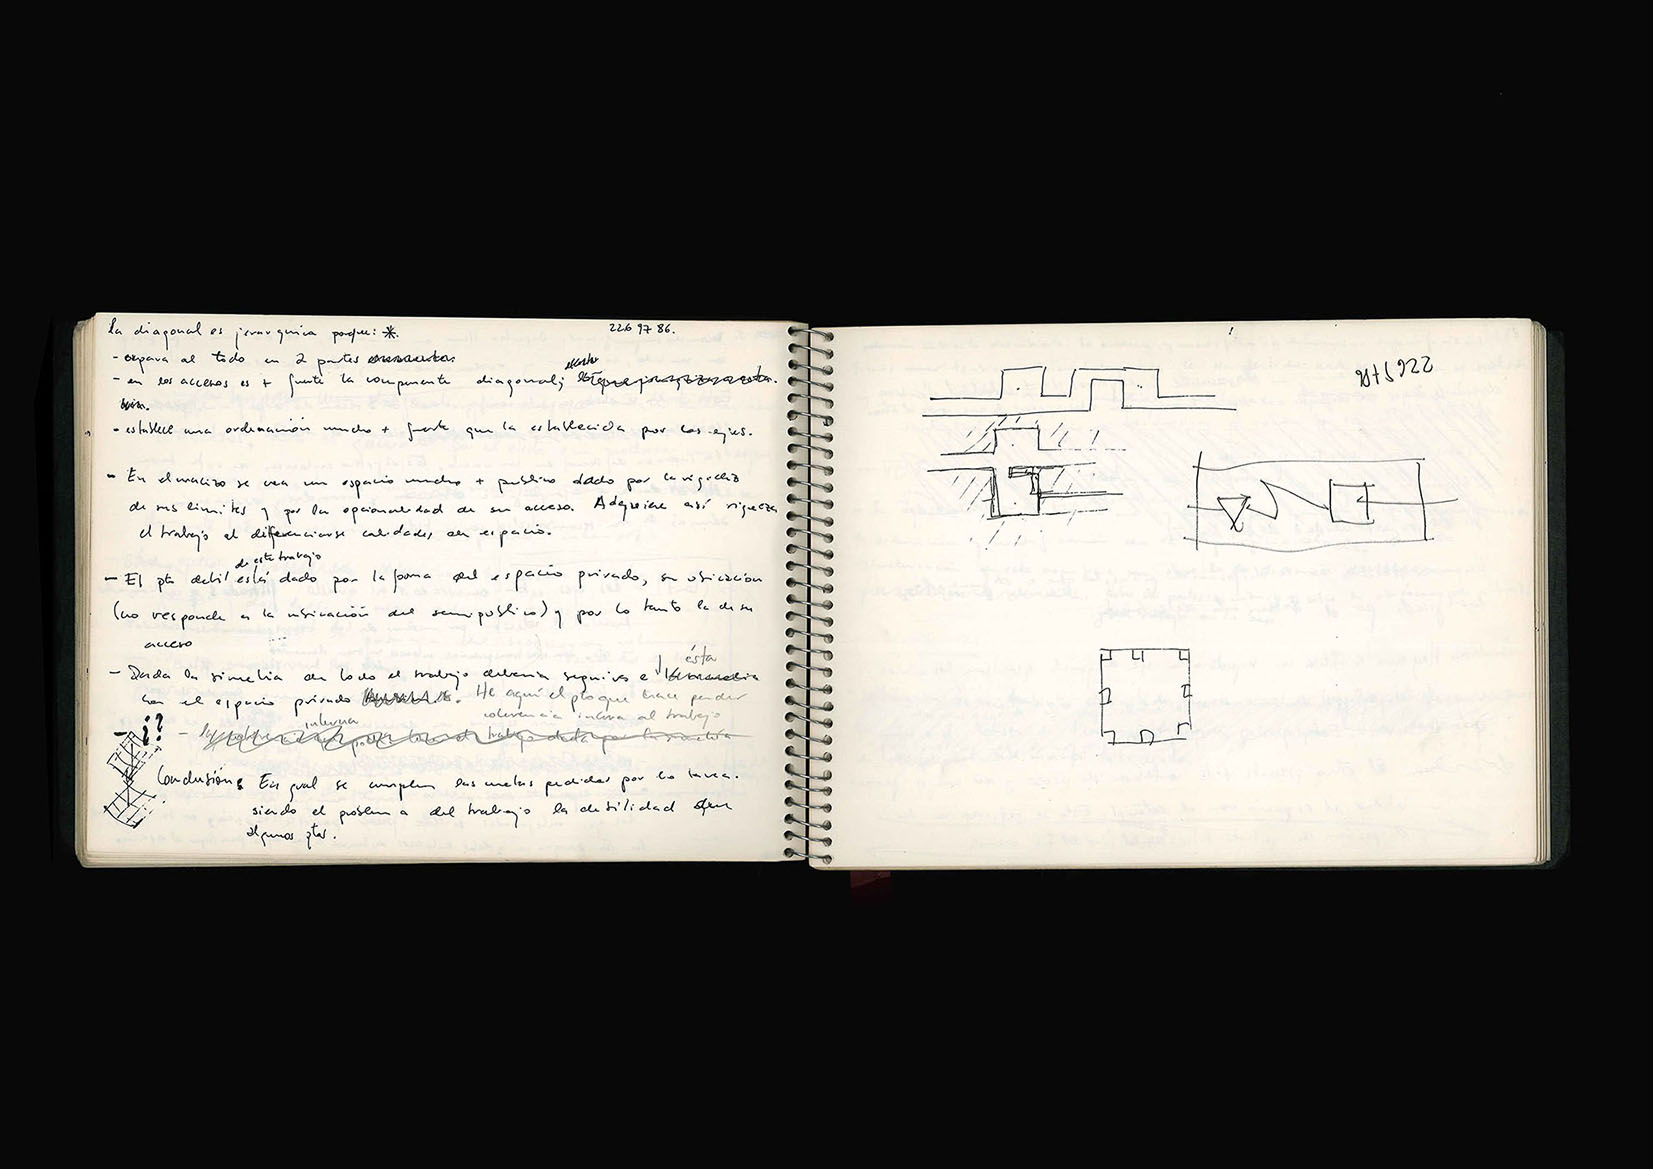 La diagonal es jerarquica porque: *.
226 97 86.
- separa al todo en 2 partes
- en los accesos es + fuerte la componente diagonal;
- establece una ordenación mucho + fuerte que la establecida por los ejes.
- En el macizo se crea un espacio mucho + publico dado por la rigidez
de sus limites y por la opcionalidad de su acceso. Adquiere así riqueza
el trabajo al diferenciarse calidades en espacio.
de este trabajo
- El pto debil está dado por la forma del espacio privado, su ubicación
(no responde a la ubicación del semipublico) y por lo tanto la de su
acceso
ésta
- Dada la simetria de todo el trabajo deberia seguirse
con el espacio privado. He aquí el pto que hace perder
coherencia interna al trabajo
interna
- ¿?
Conclusión: En gral se cumplen las metas pedidas por la tarea.
siendo el problema del trabajo la debilidad en
algunos ptos.